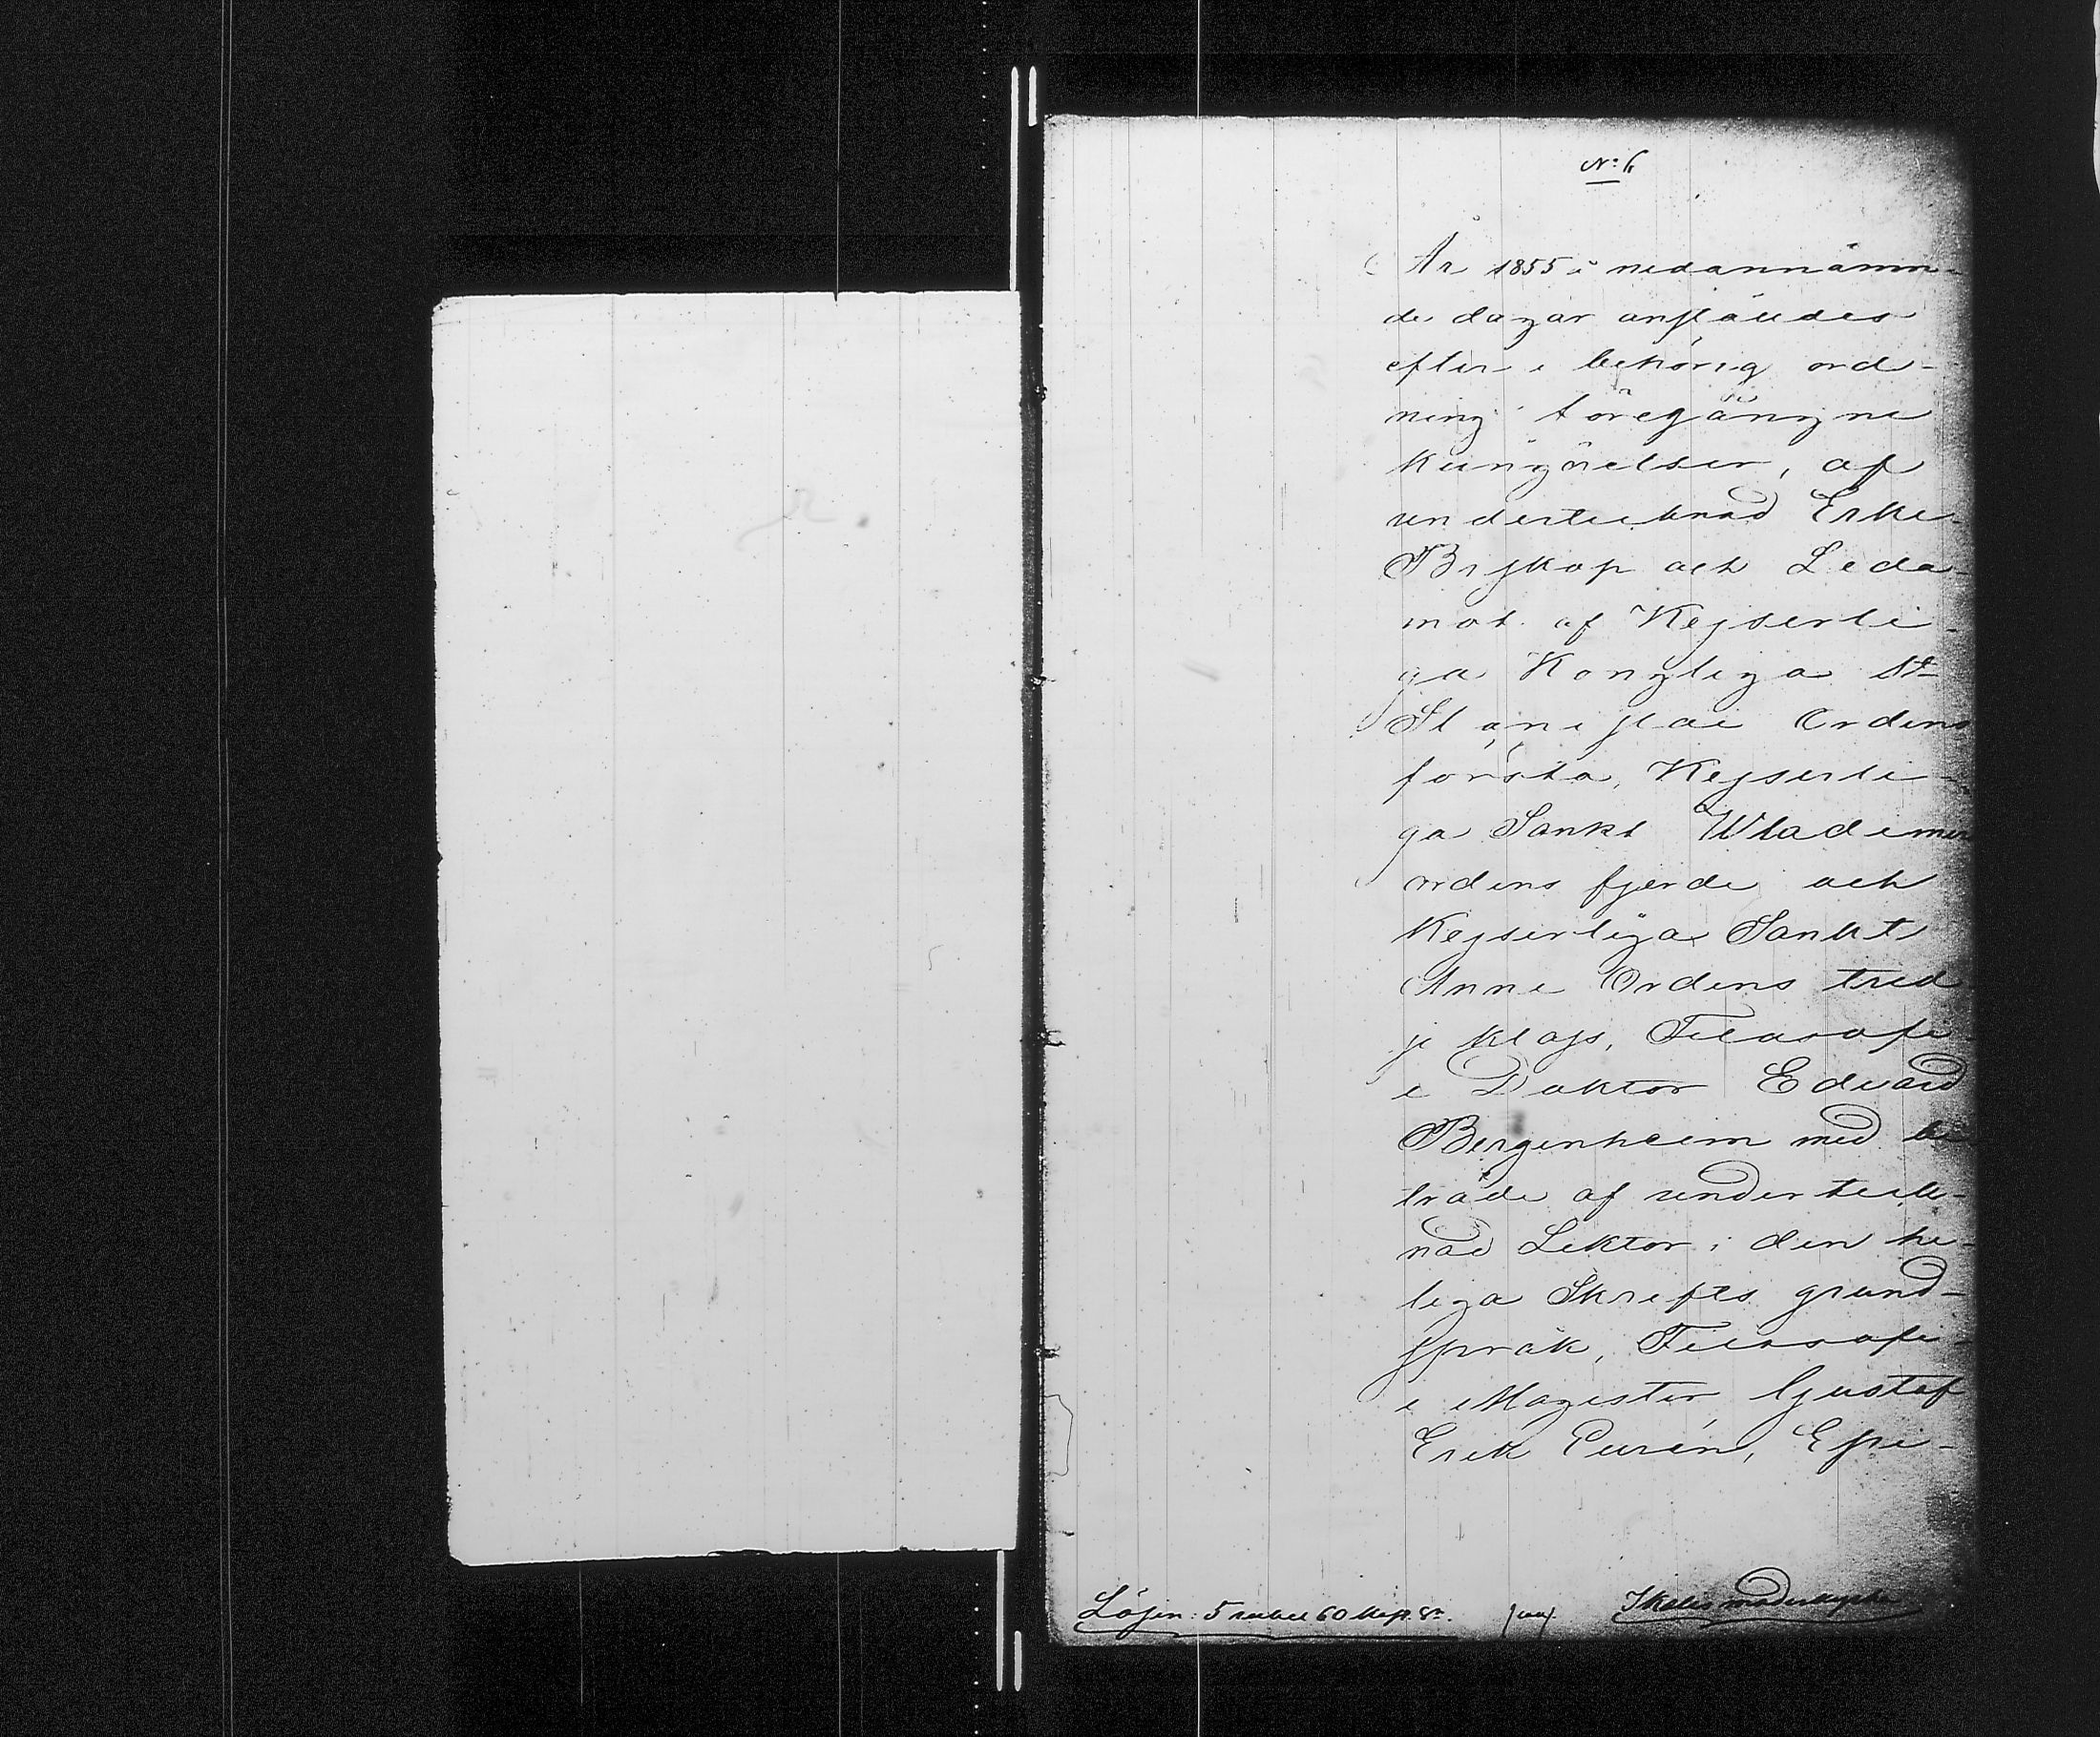 N:o 6
År 1855 i nedannämn-
de dagar anstäldes
efter i behörig ord-
ning föregångne
kungörelser, af
undertecknad Erke-
Biskop och Leda-
mot af Kejserli-
ga Kongliga St
Stanislai Ordens
första, Kejserli-
ga Sankt Wladimir
ordens fjerde och
Kejserliga Sankt
Anne Ordens tred
je klass, Filosofi
e Doktor Edvard
Bergenheim med bi
träde af underteck-
nad Lektor i den he-
liga Skrifts grund-
språk, Filosofi-
e Magister Gustaf
Erik Eurén, Epi-
Lösen: 5 rubel 60 kop. Sr.
Ikalis moderkyrka